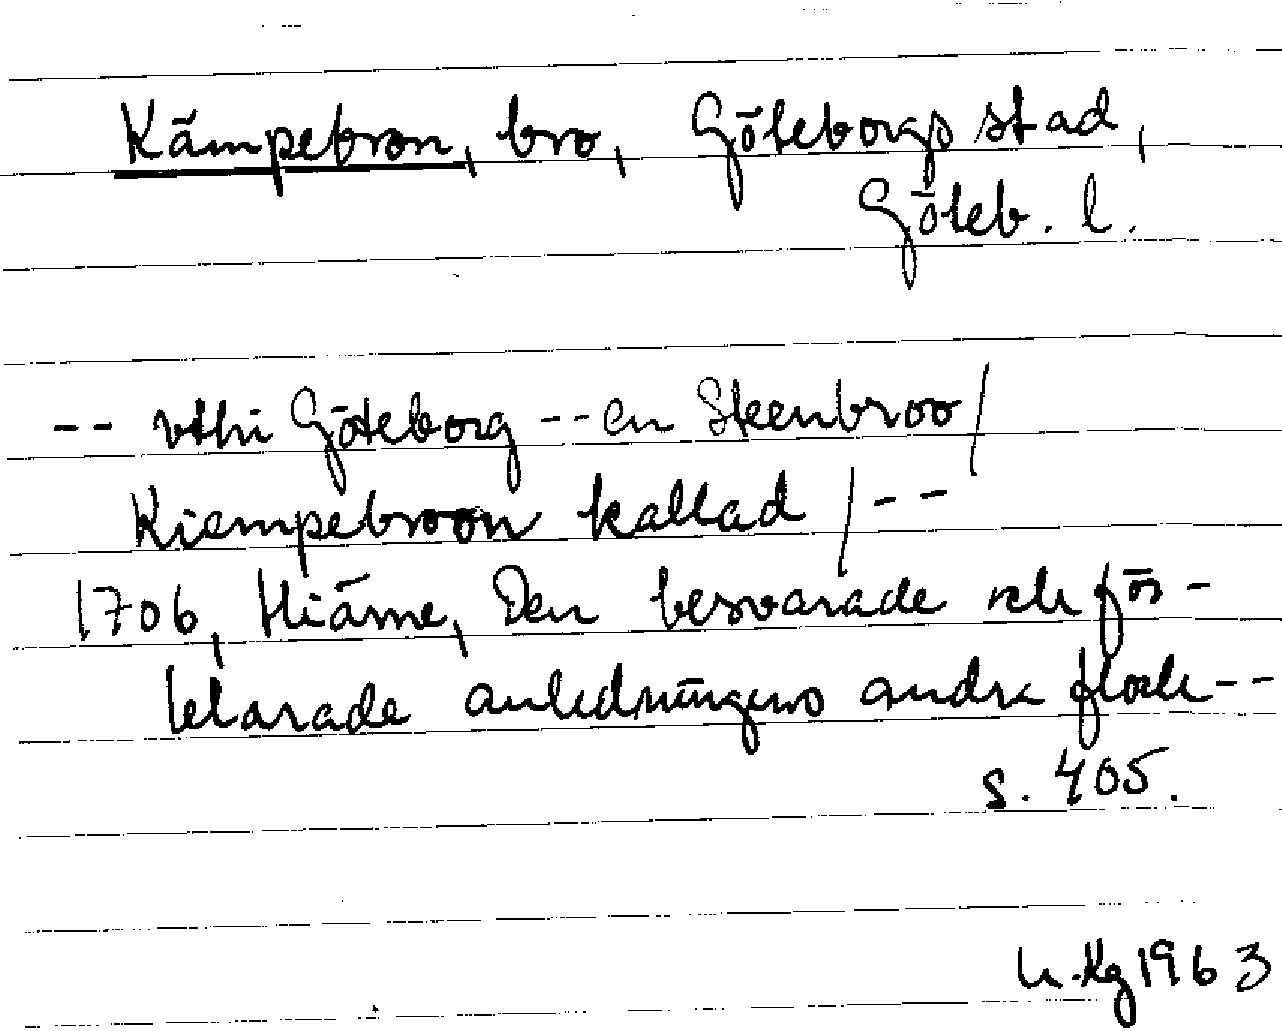 Kämpebron, bro, Göteborgs stad,
Göteb. l.
-- vthi Göteborg -- en Steenbroo/
Kiempebroon kallad /--
1706, Hiärne, Den besvarade och för-
klarade anledningens andra flock--
s. 405.
u. Kg 1963